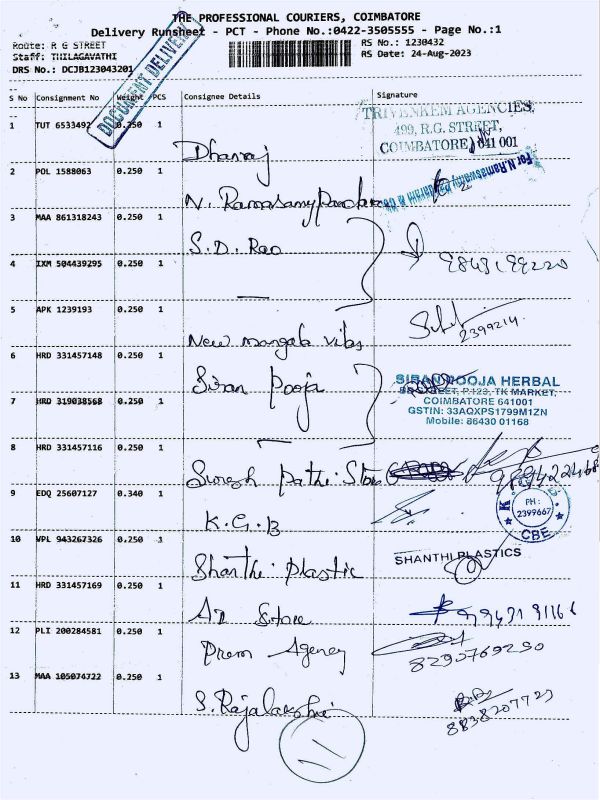 THE PROFESSIONAL COURIERS, COIMBATORE
Delivery Runsheet - PCT - Phone No.:0422-3505555 - Page No.:1
Route: R G STREET
RS No.: 1230432
Staff: THILAGAVATHI
RS Date: 24-Aug-2023
DRS No.: DCJB123043201
DOCUMENT DELIVERY
S No Consignment No Weight PCS Consignee Details Signature
1 TUT 6533492 0.250 1 Dhanraj
TRIVENKEM AGENCIES,
499, R.G. STREET,
COIMBATORE 641 001
2 POL 1588063 0.250 1 N. Ramasamy
For N.Ramaswamy
3 MAA 861318243 0.250 1 S.D. Rao
4 IXM 504439295 0.250 1 —
5 APK 1239193 0.250 1 New mangala vilas
2399214
6 HRD 331457148 0.250 1 Siran Pooja
SIRAN POOJA HERBAL
TK MARKET,
COIMBATORE 641001
GSTIN: 33AQXPS1799M1ZN
Mobile: 86430 01168
7 HRD 319038568 0.250 1
8 HRD 331457116 0.250 1 Suresh Pathi Store
9 EDQ 25607127 0.340 1 K.G.B
PH :
2399667
CBE
10 VPL 943267326 0.250 1 Shanthi Plastic
SHANTHI PLASTICS
11 HRD 331457169 0.250 1 Store
12 PLI 200284581 0.250 1 Prem Agency
8290769290
13 MAA 105074722 0.250 1 S. Rajalakshmi
8838207723
11